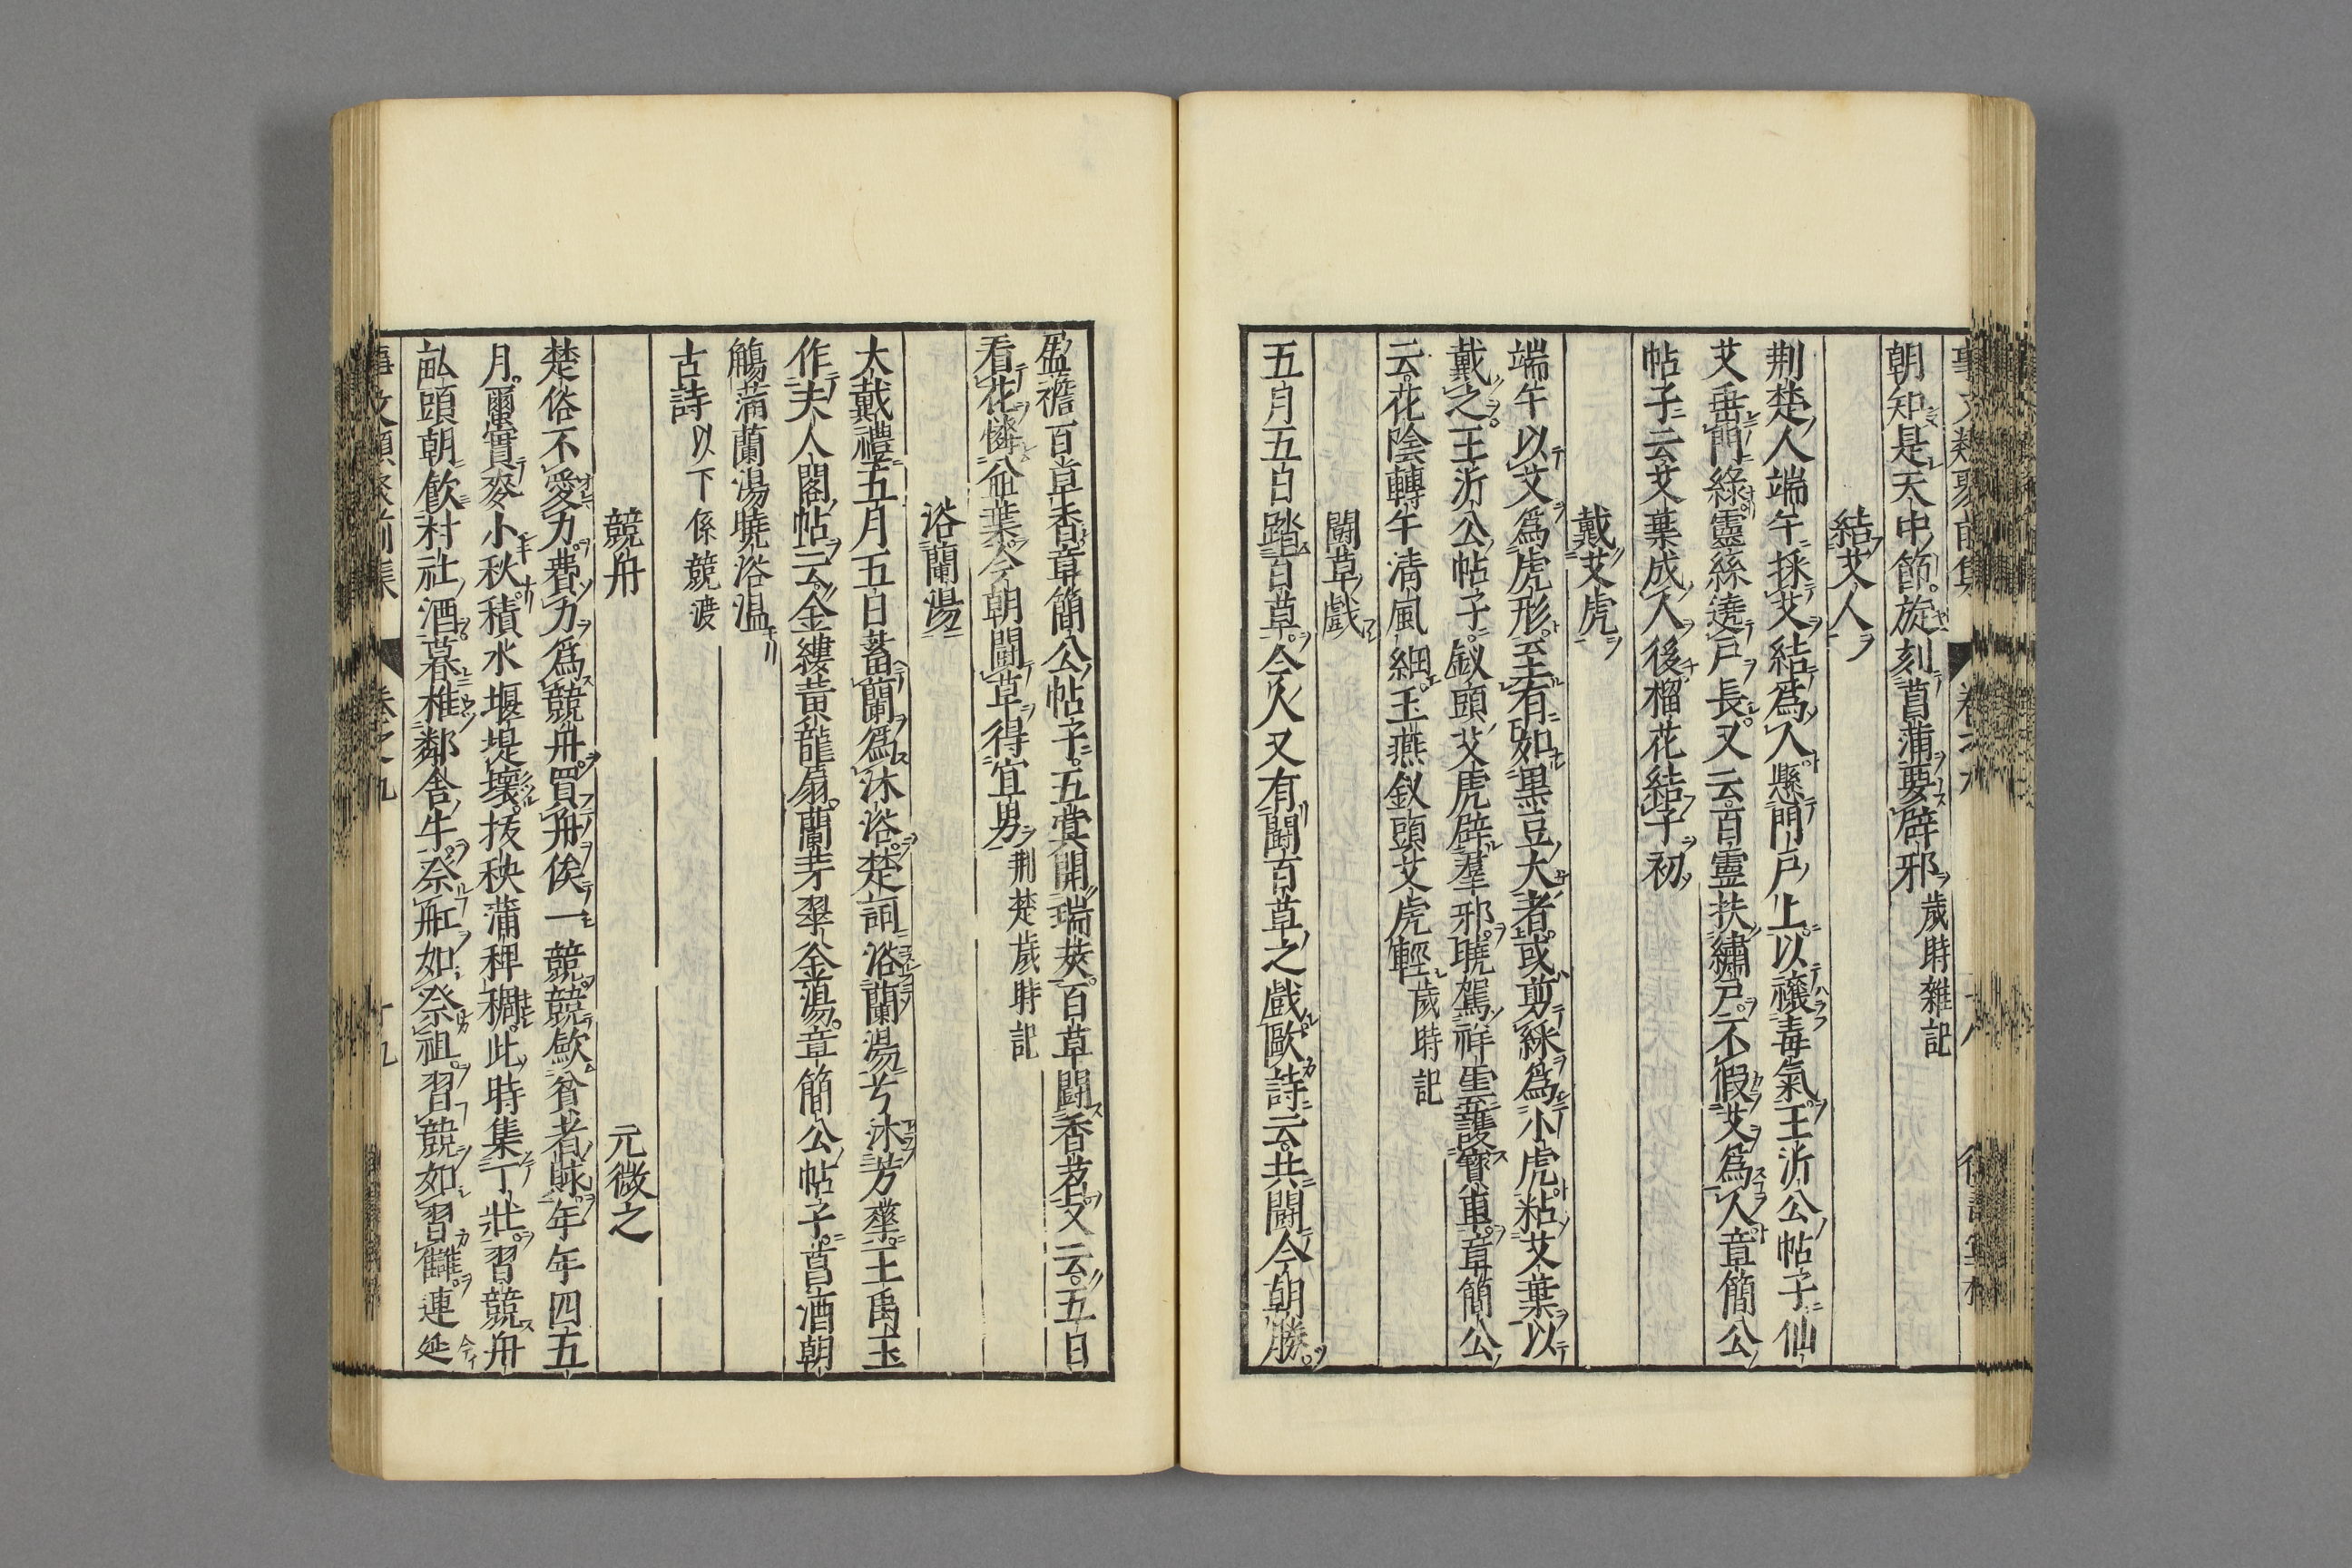 朝知是天中節旋刻菖蒲要辟邪歲時雜記
結艾人
荆楚人端午採艾結爲人懸門戶上以禳毒氣王沂公帖子仙
艾垂門綠靈絲遶戶長又云百靈扶繡戶不假艾爲人章簡公
帖子云艾葉成人後榴花結子初
戴艾虎
端午以艾爲虎形至有如黒豆大者或剪綵爲小虎粘艾葉以
戴之王沂公帖子釵頭艾虎辟羣邪曉駕祥雲護寳車章簡公
云花陰轉午清風細玉燕釵頭艾虎輕歲時記
鬪草戲
五月五日踏百草今人又有鬪百草之戲歐詩云共鬪今朝勝
盈襜百草香章簡公帖子五蓂開瑞莢百草鬪香茗又云五日
看花憐並葉今朝鬪草得宜男荆楚歲時記
浴蘭湯
大戴禮五月五日蓄蘭爲沐浴楚詞浴蘭湯兮沐芳華王禹玉
作夫人閣帖云金縷黃龍扇蘭芽翠釜湯章簡公帖子菖酒朝
觴滿蘭湯曉浴温
古詩以下係競渡
競舟 元微之
楚俗不愛力費力爲競舟買舟俟一競競歛貧者賕年年四五
月繭實麥小秋積水堰堤壞抜秧蒲稗稠此時集丁壯習競舟
畝頭朝飲村社酒暮椎鄰舎牛祭舡如祭祖習競如習讎連延
事文類聚前集 卷之九 十九